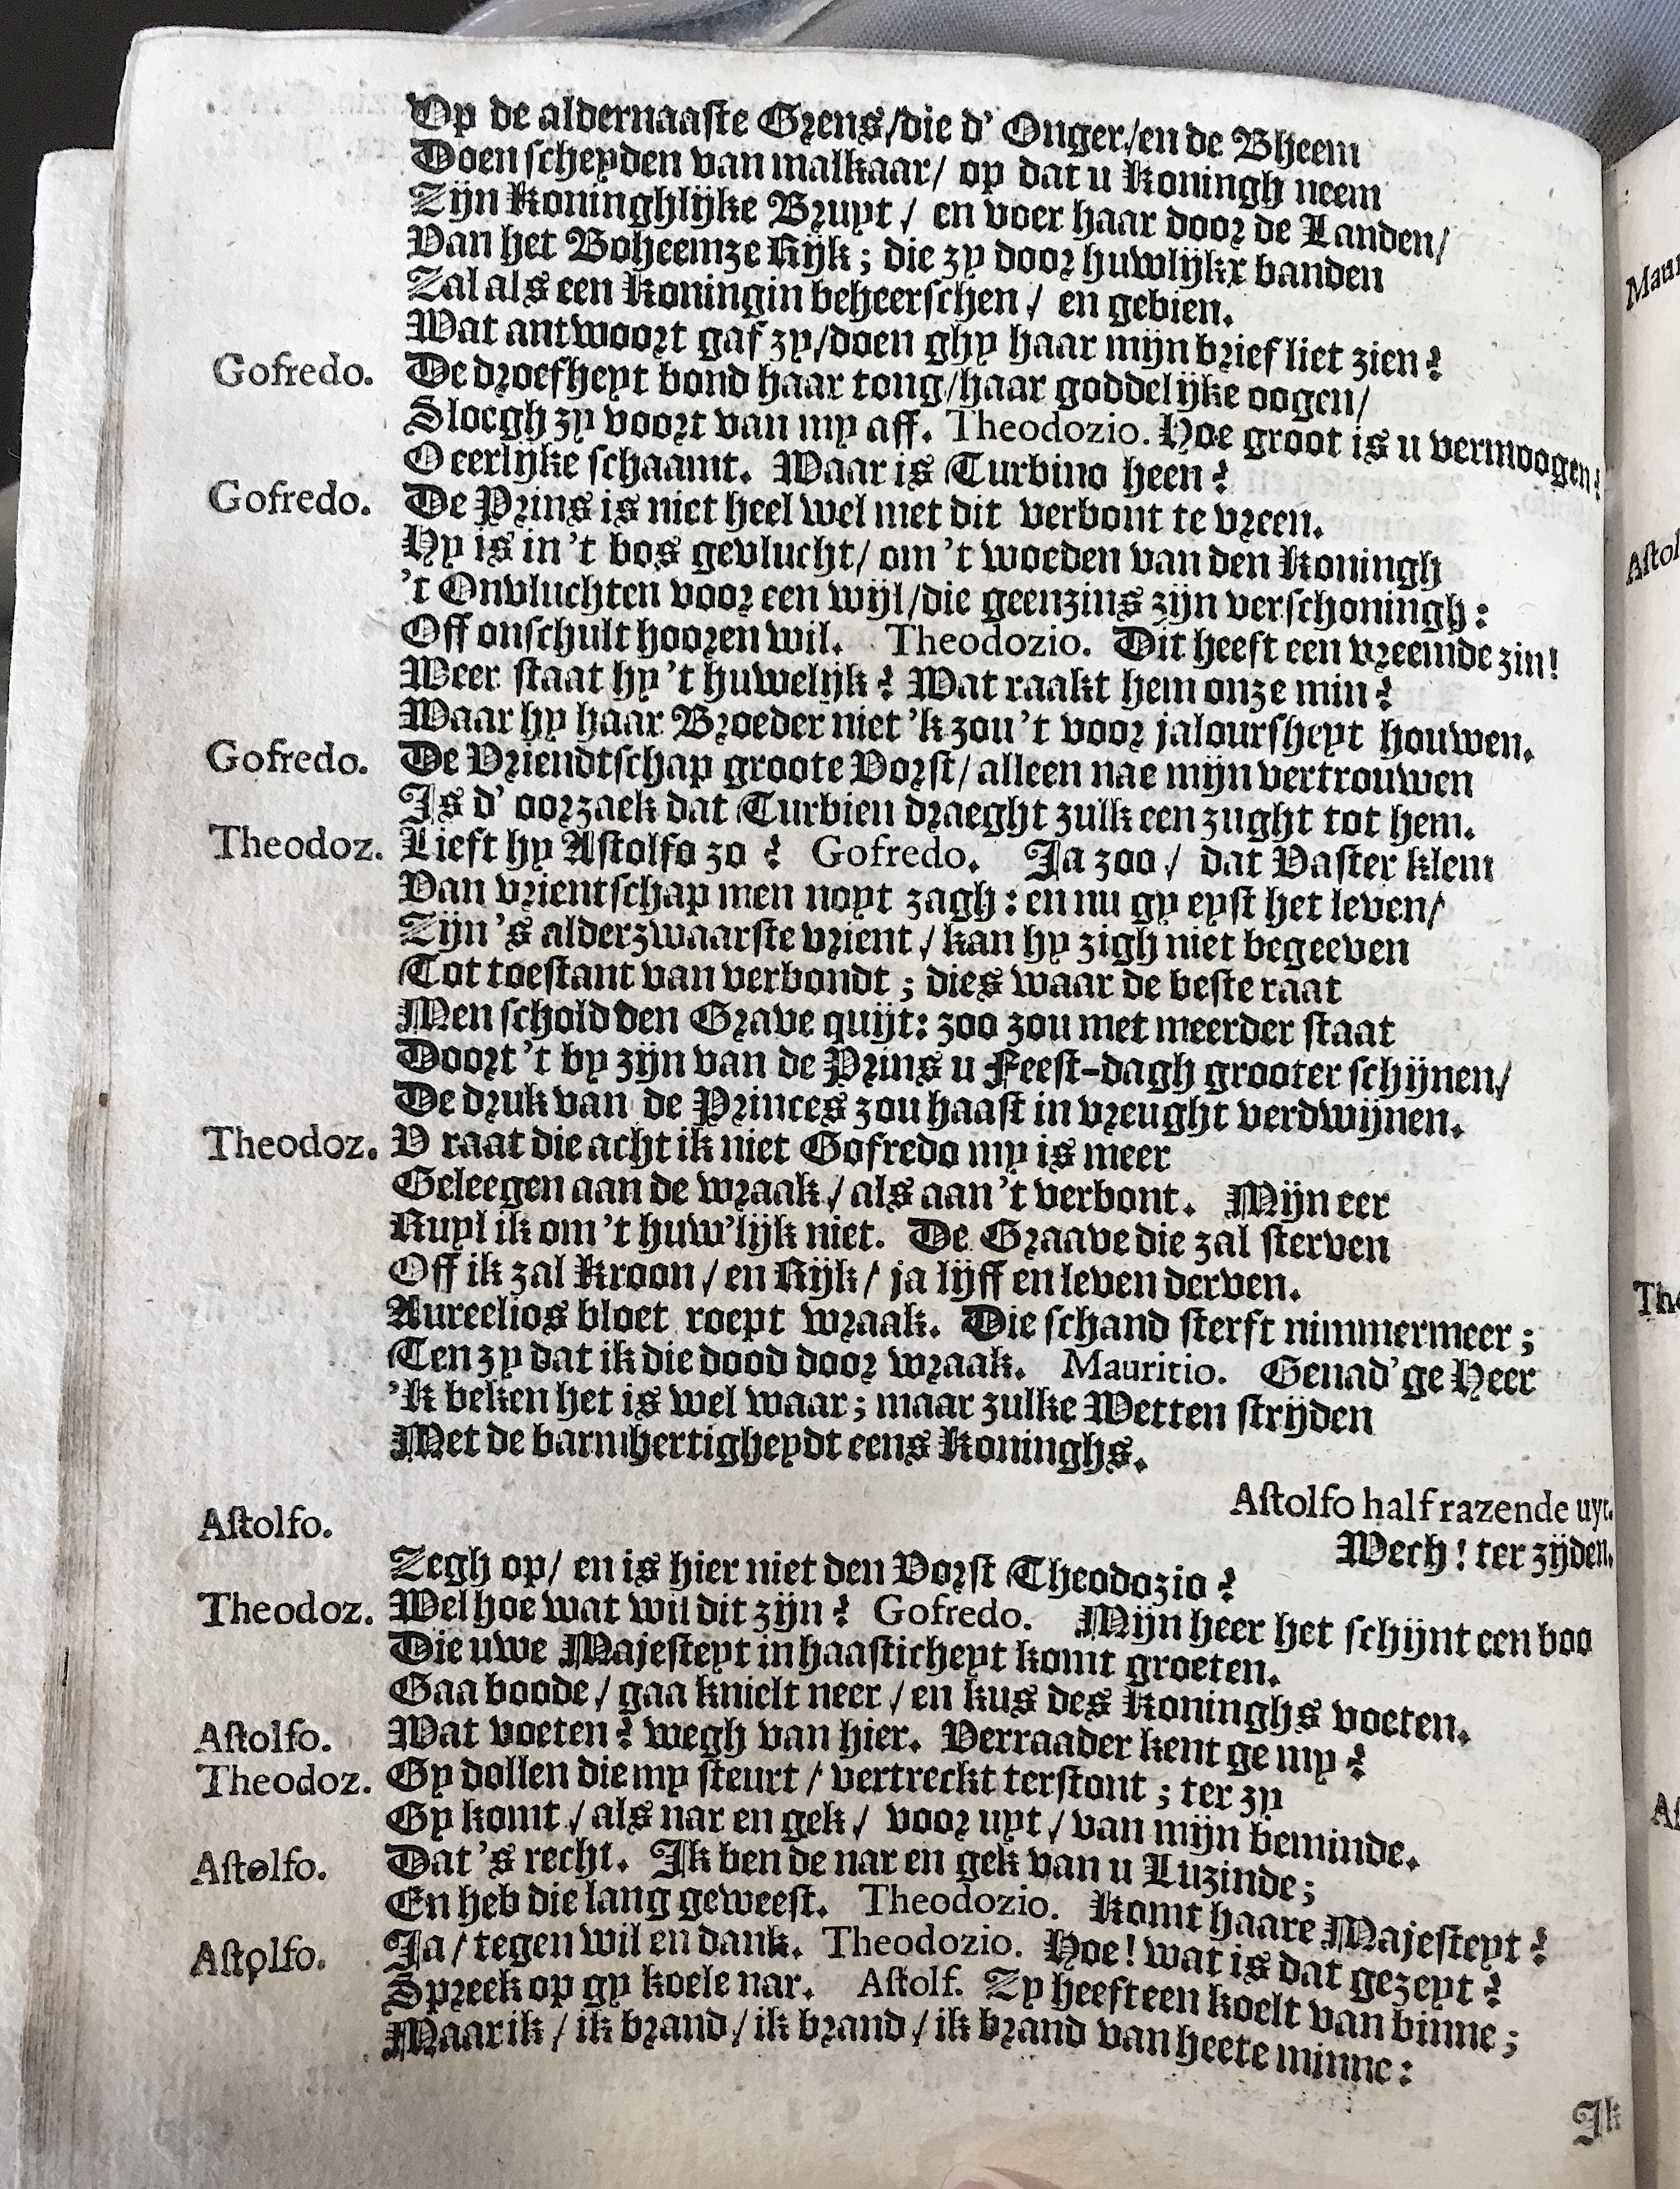 Op de aldernaaste Grens/die d' Onger/en de Bheem
Doen scheyden van malkaar/ op dat u Koningh neem
Zijn Koninghlijke Bruyt / en voer haar door de Landen/
Van het Boheemze Rijk; die zy door huwlijkx banden
Zal als een Koningin beheerschen / en gebien.
Wat antwoort gaf zy/doen ghy haar mijn brief liet zien?
Gofredo. De droefheyt bond haar tong/haar goddelijke oogen/
Sloegh zy voort van my aff. Theodozio. Hoe groot is u vermoogen!
O eerlijke schaamt. Waar is Turbino heen?
Gofredo. De Prins is niet heel wel met dit verbont te vreen.
Hy is in 't bos gevlucht/ om 't woeden van den Koningh
't Onvluchten voor een wijl/die geenzins zijn verschoningh:
Off onschult hooren wil. Theodozio. Dit heeft een vreemde zin!
Weer staat hy 't huwelijk? Wat raakt hem onze min?
Waar hy haar Broeder niet 'k zou 't voor jaloursheyt houwen.
Gofredo. De Vriendtschap groote Vorst/ alleen nae mijn vertrouwen
Is d' oorzaek dat Turbien draeght zulk een zught tot hem.
Theodoz. Lieft hy Astolfo zo? Gofredo. Ja zoo / dat Vaster klem
Van vrientschap men noyt zagh: en nu gy eyst het leven/
Zijn 's alderzwaarste vrient / kan hy zigh niet begeeven
Tot toestant van verbondt; dies waar de beste raat
Men schold den Grave quijt: zoo zou met meerder staat
Doort 't by zijn van de Prins u Feest-dagh grooter schijnen/
De druk van de Princes zou haast in vreught verdwijnen.
Theodoz. V raat die acht ik niet Gofredo my is meer
Geleegen aan de wraak / als aan 't verbont. Mijn eer
Ruyl ik om 't huw'lijk niet. De Graave die zal sterven
Off ik zal Kroon / en Rijk / ja lijff en leven derven.
Aureelios bloet roept wraak. Die schand sterft nimmermeer;
Ten zy dat ik die dood door wraak. Mauritio. Genad'ge Heer
'K beken het is wel waar; maar zulke Wetten strijden
Met de barmhertigheydt eens Koninghs.
Astolfo half razende uyt.
Astolfo. Wech! ter zijden.
Zegh op/ en is hier niet den Vorst Theodozio?
Theodoz. Wel hoe wat wil dit zijn? Gofredo. Mijn heer het schijnt een boo
Die uwe Majesteyt in haasticheyt komt groeten.
Gaa boode / gaa knielt neer / en kus des Koninghs voeten.
Astolfo. Wat voeten? wegh van hier. Verraader kent ge my?
Theodoz. Gy dollen die my steurt / vertreckt terstont; ter zy
Gy komt / als nar en gek / voor uyt / van mijn beminde.
Astolfo. Dat 's recht. Ik ben de nar en gek van u Luzinde;
En heb die lang geweest. Theodozio. Komt haare Majesteyt?
Astolfo. Ja / tegen wil en dank. Theodozio. Hoe! wat is dat gezeyt?
Spreek op gy koele nar. Astolf. Zy heeft een koelt van binne;
Maar ik / ik brand / ik brand / ik brand van heete minne:
Ik
Mau
Astol
The
As